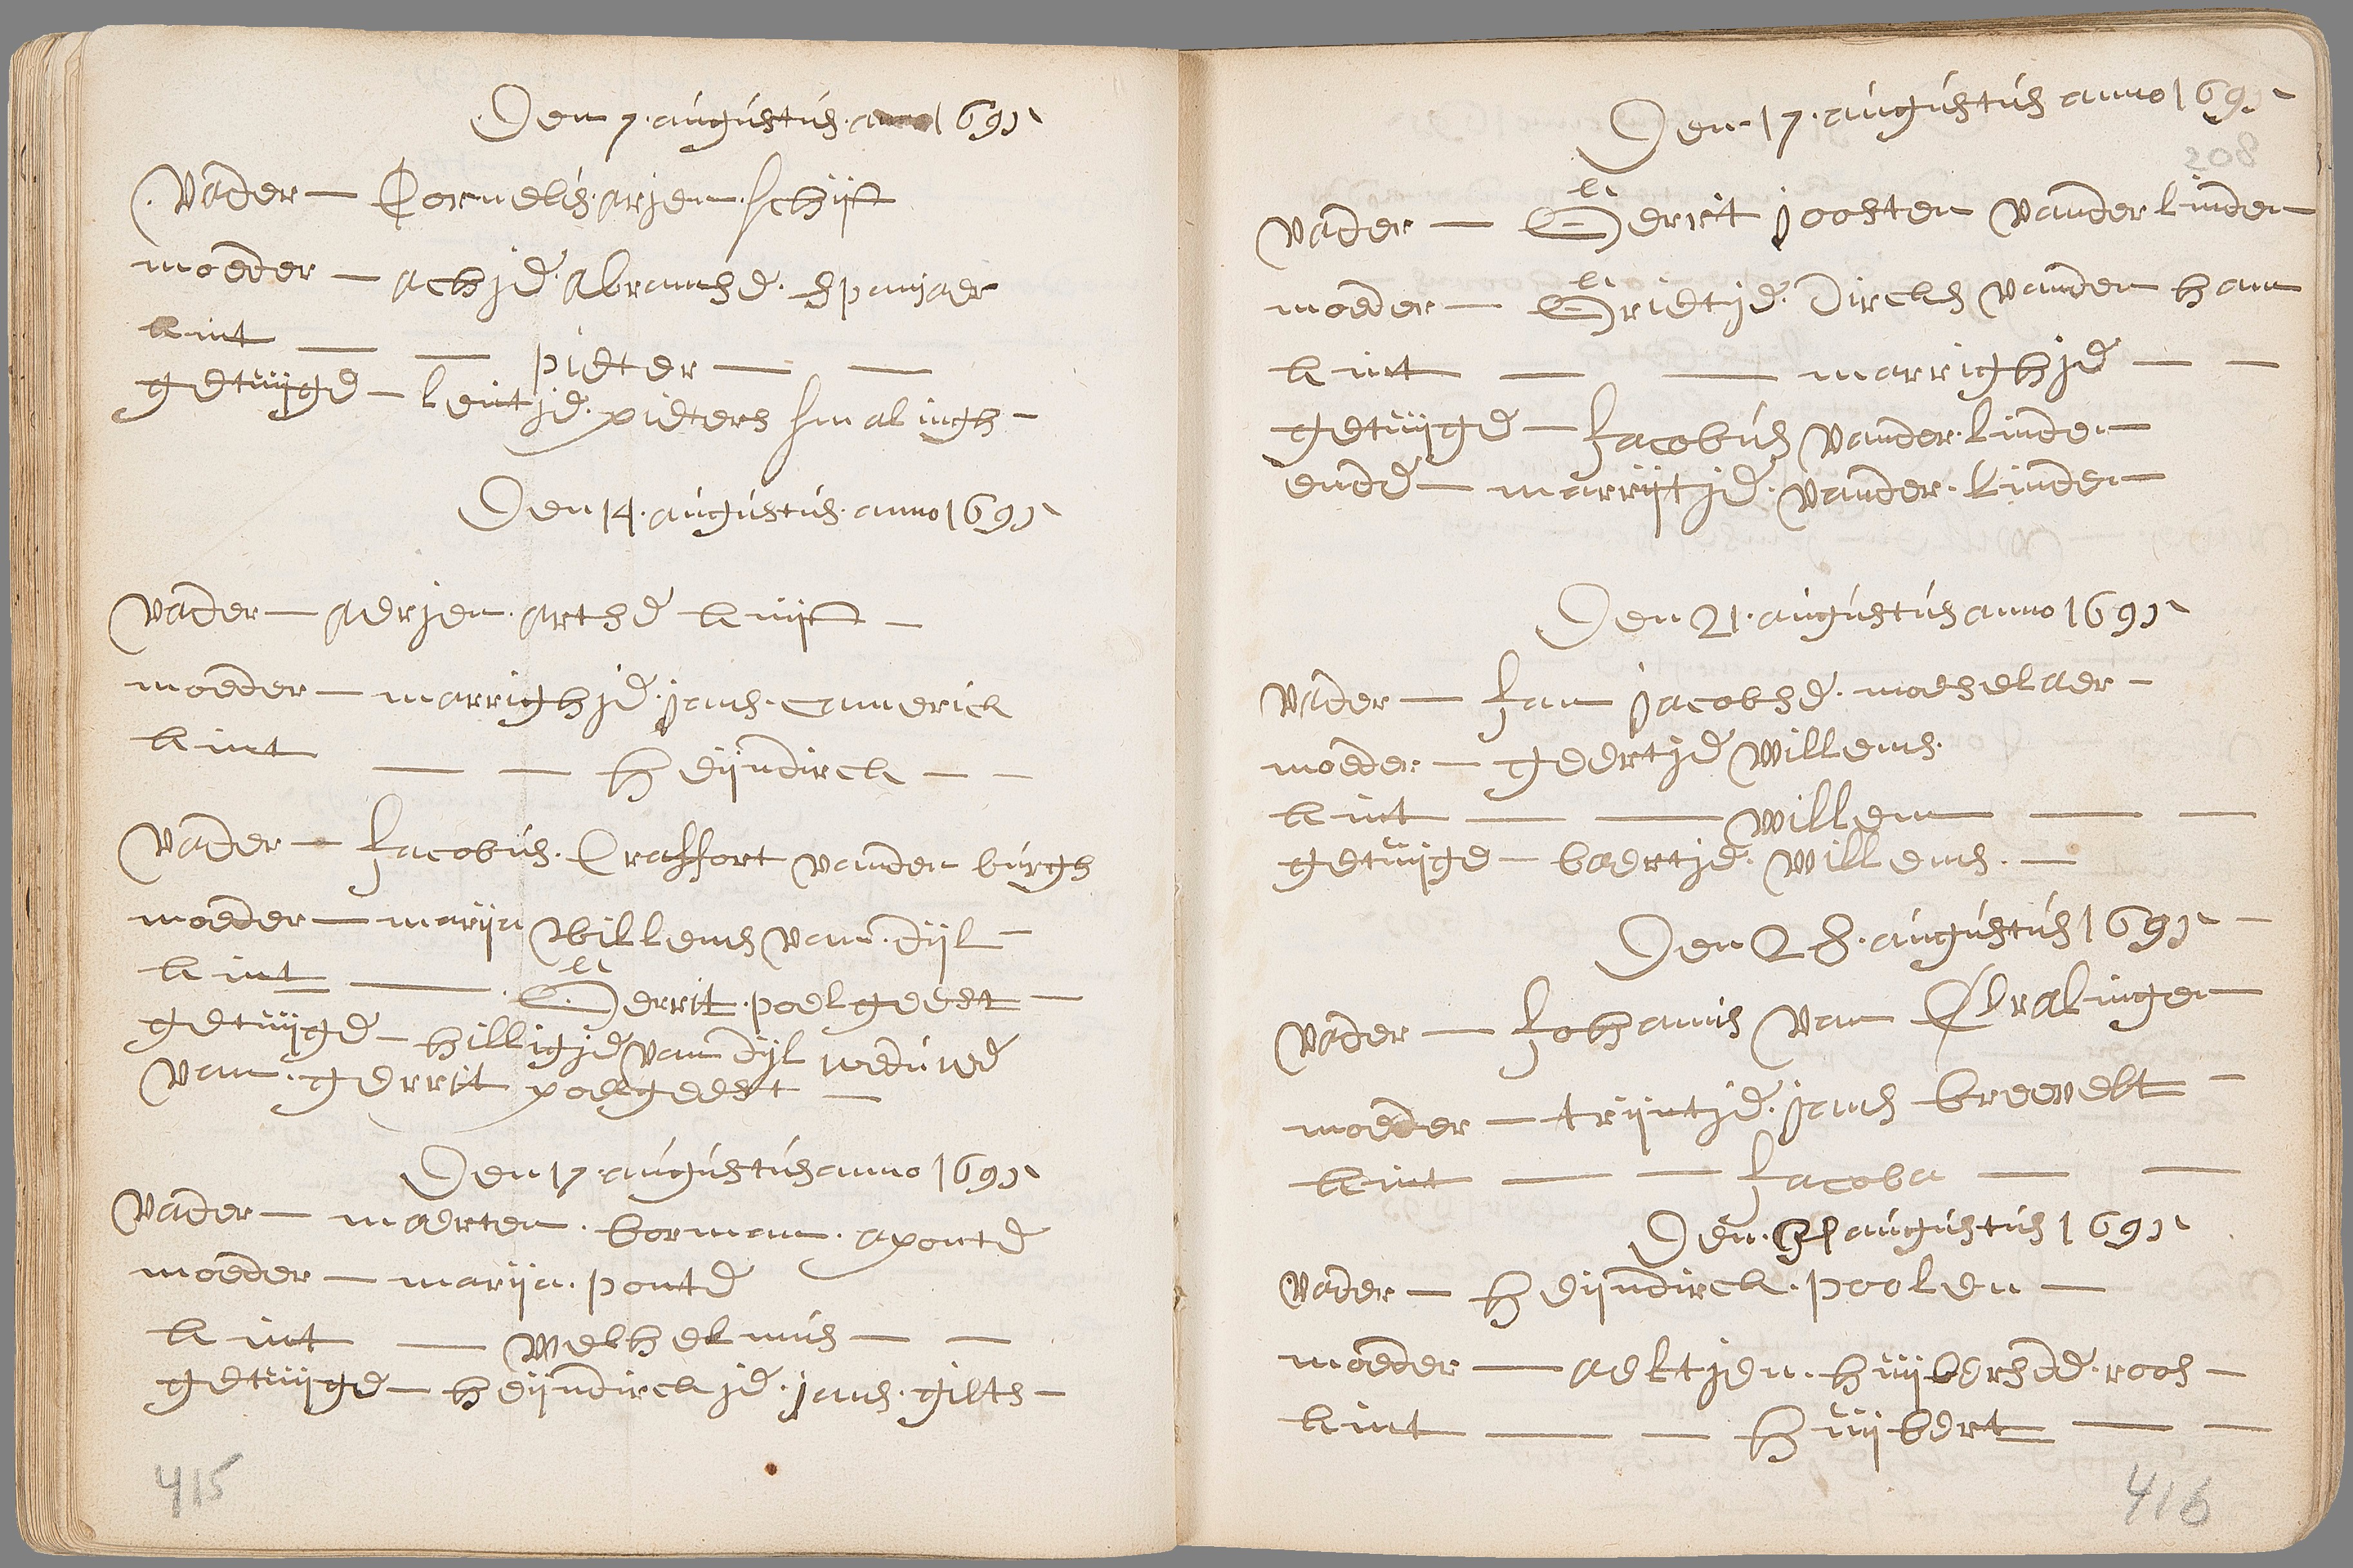 Den 7. augustus. anno 1691
Vader — Cornelis. arjen. schijf
moeder — achje. Abramse. spanjaer
kint — — pieter — —
getuijge — leintje. pieters smalingh —
Den 14. augustus. anno 1691
Vader — aerjen. artse kuijf —
moeder — marrighje. jans. camerick
kint — — heijndirck — —
Vader — Jacobus. Craffort vanden burgh
moeder — marija Willems van. dijl —
kint — Gerrit. poelgeest —
getuijge — hilligje van dijl weduwe
van. gerrit poelgeest —
Den 17. augustus anno 1691
Vader — maerten. borman. aponte
moeder — marija. ponte
kint — welhelmus — —
getuijge — heijndirckje. jans. gilts —
415
Den 17. augustus anno 1691
208
Vader — Gerrit joosten vander linden
moeder — Grietije. Dircks vanden ham
kint — — marrighje — —
getuijge — Jacobus vander. linden
ende — marrijtje. vander. linden
Den 21. augustus anno 1691
Vader — Jan jacobse. moeselaer —
moeder — geertje Willems.
kint — — willem — —
getuijge — baertje. willems. —
Den 28. augustus 1691 —
Vader — Johannis van Cralingen
moeder — trijntje. jans breevelt —
kint — — Jacoba — —
Den. 31 augustus 1691
Vader — heijndirck. poolen —
moeder — aeltjen. huijbersde. roos —
kint — — huijbert — —
416